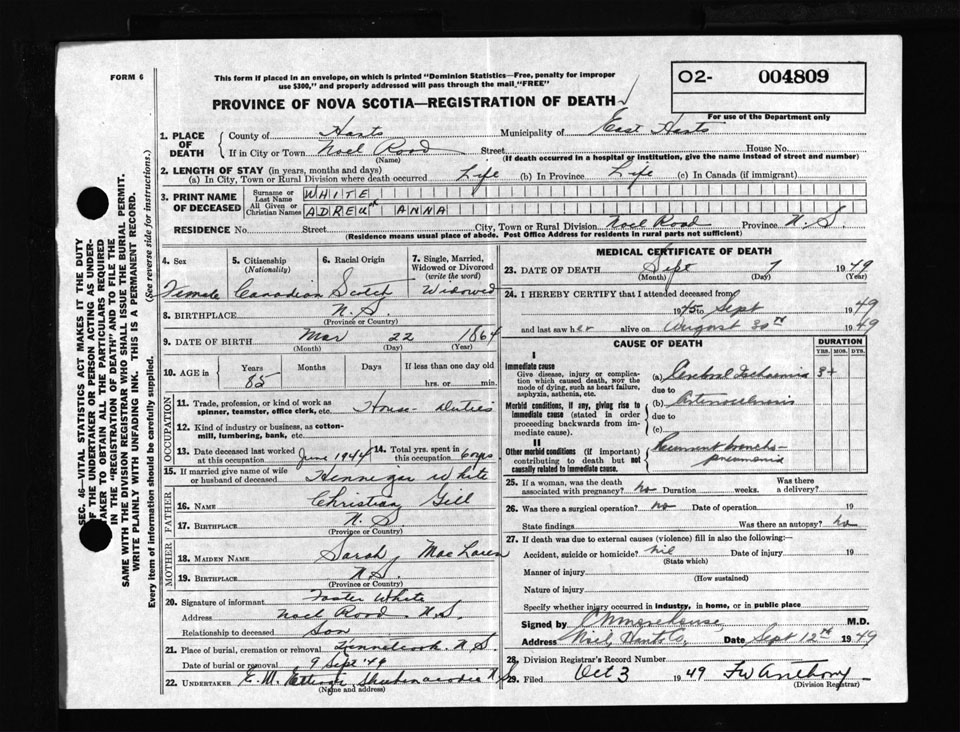 FORM 6
This form if placed in an envelope, on which is printed "Dominion Statistics—Free, penalty for improper
use $300," and properly addressed will pass through the mail "FREE"
O2- 004809
For use of the Department only
PROVINCE OF NOVA SCOTIA—REGISTRATION OF DEATH
1. PLACE OF DEATH
County of Hants Municipality of East Hants
If in City or Town Noel Road Street House No.
(Name) (If death occurred in a hospital or institution, give the name instead of street and number)
2. LENGTH OF STAY (in years, months and days)
(a) In City, Town or Rural Division where death occurred Life (b) In Province Life (c) In Canada (if immigrant)
3. PRINT NAME OF DECEASED
Surname or Last Name WHITE
All Given or Christian Names ADREU ANNA
RESIDENCE No. Street City, Town or Rural Division Noel Road Province N.S.
(Residence means usual place of abode. Post Office Address for residents in rural parts not sufficient)
4. Sex Female
5. Citizenship (Nationality) Canadian
6. Racial Origin Scotch
7. Single, Married, Widowed or Divorced (write the word) Widowed
8. BIRTHPLACE N.S.
(Province or Country)
9. DATE OF BIRTH Mar 22 1864
(Month) (Day) (Year)
10. AGE in Years 85 Months Days If less than one day old
hrs. or min.
OCCUPATION
11. Trade, profession or kind of work as
spinner, teamster, office clerk, etc. House-Duties
12. Kind of industry or business, as cotton-
mill, lumbering, bank, etc.
13. Date deceased last worked at this occupation June 1944
14. Total yrs. spent in this occupation 60 yrs
15. If married give name of wife
or husband of deceased Hennigar White
FATHER
16. Name Christian Gill
17. Birthplace N.S.
(Province or Country)
MOTHER
18. Maiden Name Sarah MacLaren
19. Birthplace N.S.
(Province or Country)
20. Signature of informant Foster White
Address Noel Road N.S.
Relationship to deceased Son
21. Place of burial, cremation or removal Kennetcook N.S.
Date of burial or removal 9 Sept '49
22. Undertaker E. M. Shubenacadie N.S.
(Name and address)
MEDICAL CERTIFICATE OF DEATH
23. DATE OF DEATH Sept 7 1949
(Month) (Day) (Year)
24. I HEREBY CERTIFY that I attended deceased from
1945 to Sept 1949
and last saw her alive on August 30th 1949
CAUSE OF DEATH
DURATION
YRS. MOS. DYS.
I
Immediate cause
Give disease, injury or complica-
tion which caused death, NOT the
mode of dying, such as heart failure,
asphyxia, asthenia, etc.
(a) Cerebral Ischaemia 3+
due to
Morbid conditions, if any, giving rise to
immediate cause (stated in order
proceeding backwards from im-
mediate cause).
(b) Arteriosclerosis
due to
(c)
II
Other morbid conditions (if important)
contributing to death but not
causally related to immediate cause.
Recurrent broncho-
pneumonia
25. If a woman, was the death
associated with pregnancy? no Duration weeks. Was there a delivery?
26. Was there a surgical operation? no Date of operation 19
State findings Was there an autopsy? no
27. If death was due to external causes (violence) fill in also the following:—
Accident, suicide or homicide? nil Date of injury 19
(State which)
Manner of injury
(How sustained)
Nature of injury
Specify whether injury occurred in industry, in home, or in public place
Signed by M.D.
Address Noel, Hants Co. Date Sept 12th 1949
28. Division Registrar's Record Number
29. Filed Oct 3 1949 FW Anthony
(Division Registrar)
SEC. 46—VITAL STATISTICS ACT MAKES IT THE DUTY
OF THE UNDERTAKER OR PERSON ACTING AS UNDER-
TAKER TO OBTAIN ALL THE PARTICULARS REQUIRED
IN THE "REGISTRATION OF DEATH" AND TO FILE THE
SAME WITH THE DIVISION REGISTRAR WHO SHALL ISSUE THE BURIAL PERMIT.
WRITE PLAINLY WITH UNFADING INK. THIS IS A PERMANENT RECORD.
Every item of information should be carefully supplied. (See reverse side for instructions.)